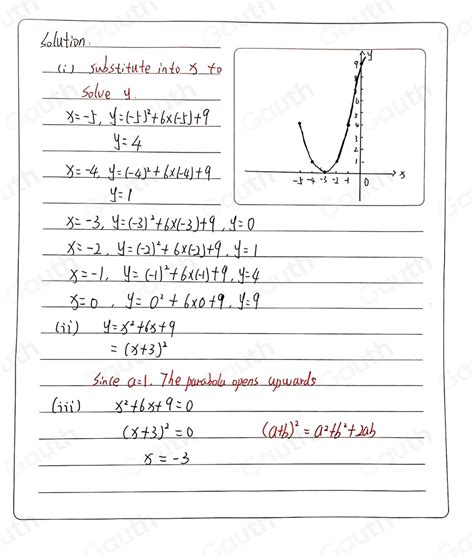 Solution:
(i) substitute into x to
solve y.
x=-5, y=(-5)²+6x(-5)+9
y=4
x=-4, y=(-4)²+6x(-4)+9
y=1
x=-3, y=(-3)²+6x(-3)+9, y=0
x=-2, y=(-2)²+6x(-2)+9, y=1
x=-1, y=(-1)²+6x(-1)+9, y=4
x=0, y=0²+6x0+9, y=9
y
9
5
4
3
2
1
-5 -4 -3 -2 -1 0 x
(ii) y=x²+6x+9
=(x+3)²
Since a=1. The parabola opens upwards
(iii) x²+6x+9=0
(x+3)²=0 (a+b)²=a²+b²+2ab
x=-3
Gauth